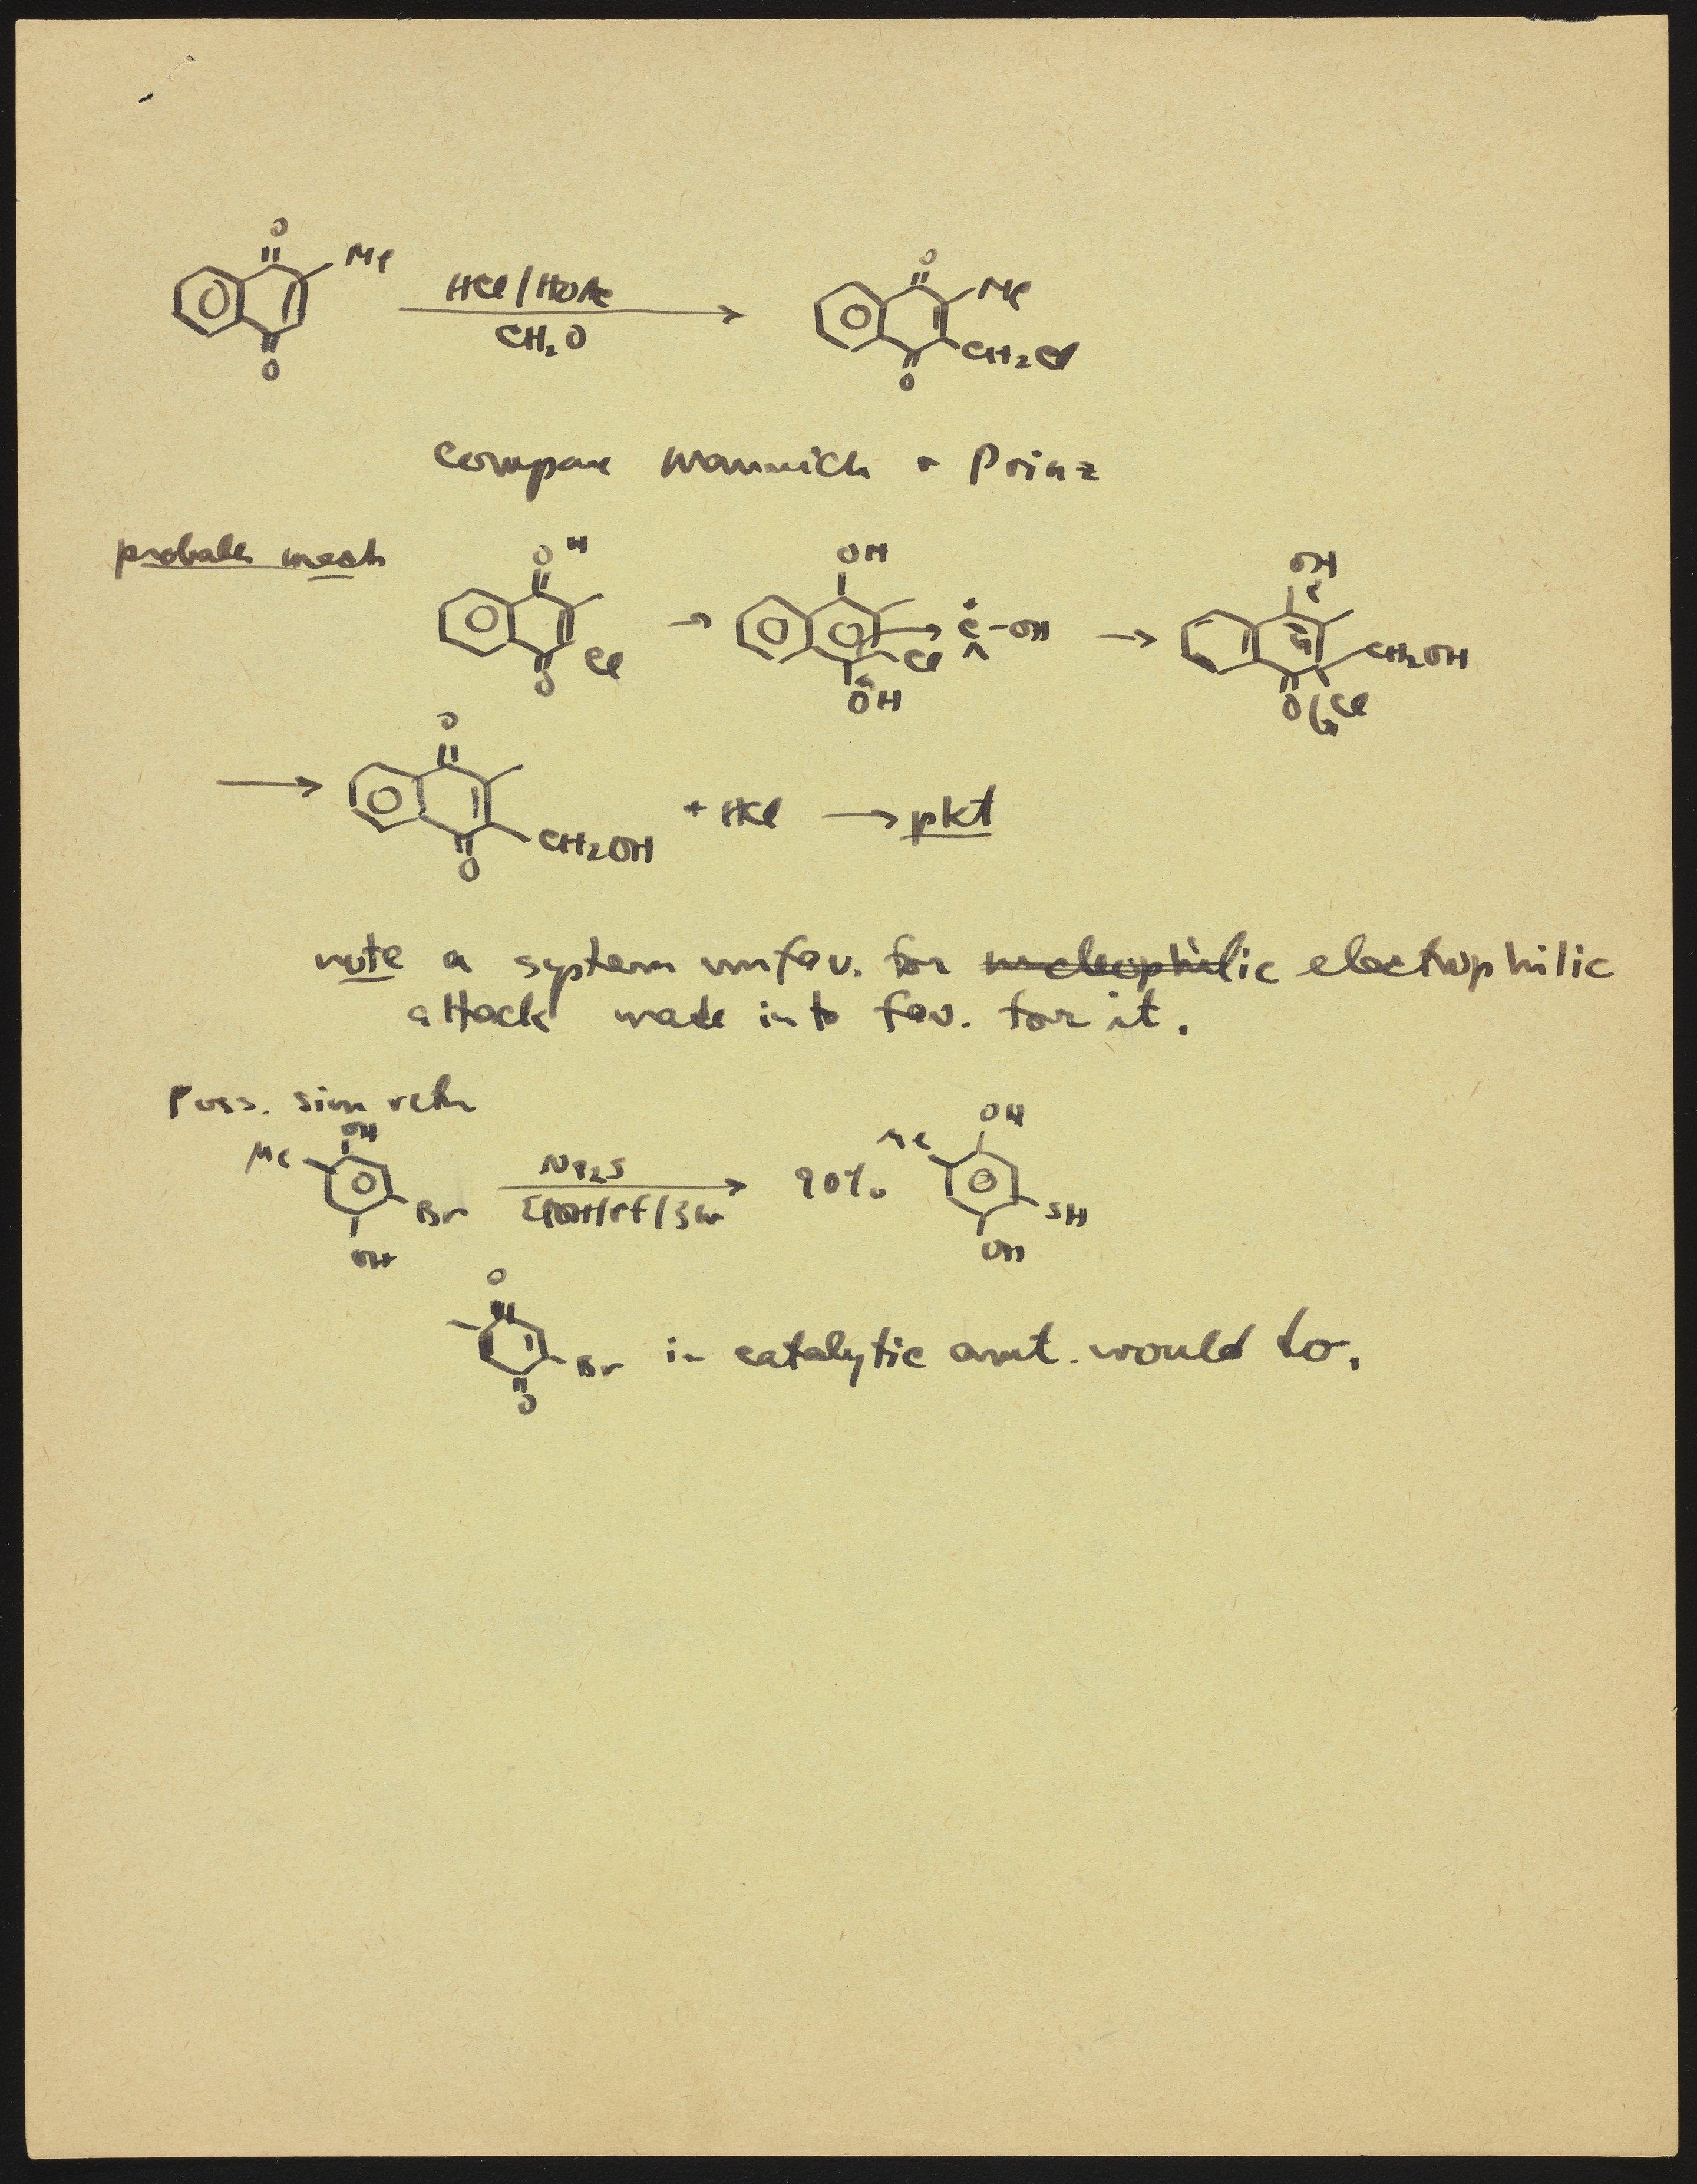 O
Me
HCl/HOAc
CH2O
O
O
Me
CH2Cl
O
Compare Mannich + Prinz
probable mech
O H
Cl
O
OH
Cl
C-OH
+
OH
OH
CH2OH
O Cl
O
CH2OH
O
+ HCl → pkt
note a system unfav. for nucleophilic electrophilic
attack made into fav. for it.
Poss. sim rctn
Me
OH
Br
OH
Na2S
EtOH/rf/3hr
90%
Me
OH
SH
OH
O
Br
O
in catalytic amt. would do.